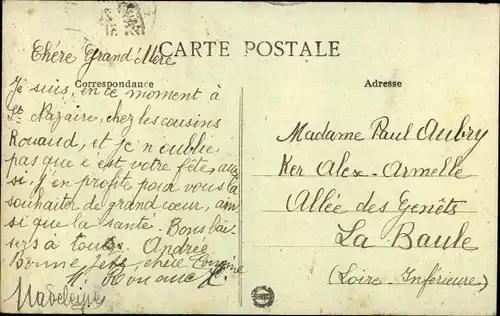 Chère Grand'Mère
CARTE POSTALE
Correspondance
Adresse
Je suis, en ce moment à
St. Nazaire, chez les cousins
Rouaud, et je n'oublie
pas que c est votre fête, aus
si, j'en profite pour vous la
souhaiter de grand cœur, ain
si que la santé. Bons bai
sers à tous. Andrée
Bonne fête, chère Cousine
Madeleine
Madame Paul Aubry
Ker Alex-Armelle
Allée des Genêts
La Baule
(Loire-Inférieure)